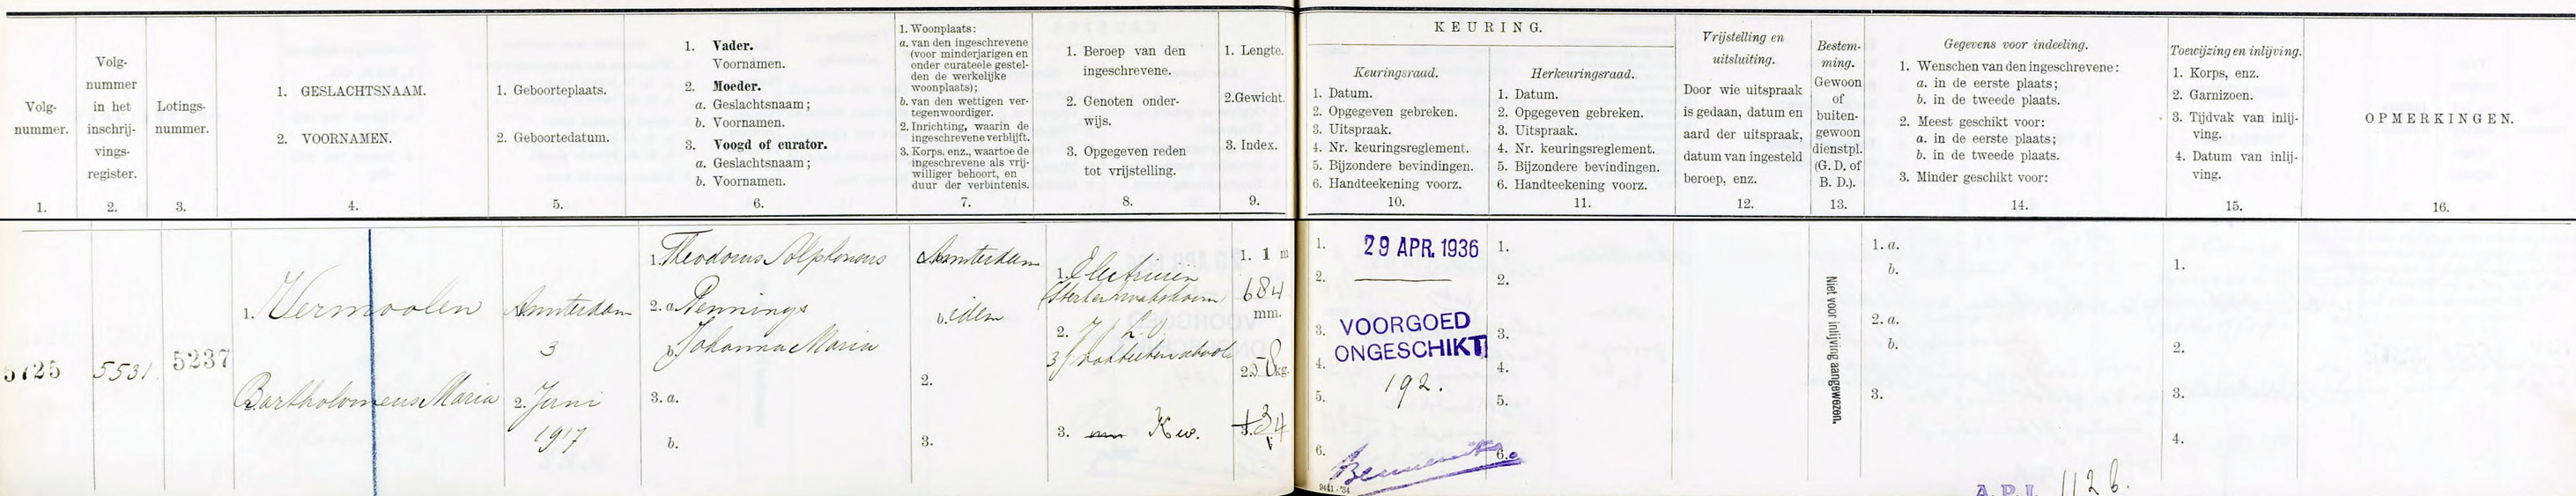 Volg-
nummer.
1.
Volg-
nummer
in het
inschrij-
vings-
register.
2.
Lotings-
nummer.
3.
1. GESLACHTSNAAM.
2. VOORNAMEN.
4.
1. Geboorteplaats.
2. Geboortedatum.
5.
1. Vader.
Voornamen.
2. Moeder.
a. Geslachtsnaam;
b. Voornamen.
3. Voogd of curator.
a. Geslachtsnaam;
b. Voornamen.
6.
1. Woonplaats:
a. van den ingeschrevene
(voor minderjarigen en
onder curateele gestel-
den de werkelijke
woonplaats);
b. van den wettigen ver-
tegenwoordiger.
2. Inrichting, waarin de
ingeschrevene verblijft.
3. Korps, enz., waartoe de
ingeschrevene als vrij-
williger behoort, en
duur der verbintenis.
7.
1. Beroep van den
ingeschrevene.
2. Genoten onder-
wijs.
3. Opgegeven reden
tot vrijstelling.
8.
1. Lengte.
2. Gewicht.
3. Index.
9.
KEURING.
Keuringsraad.
1. Datum.
2. Opgegeven gebreken.
3. Uitspraak.
4. Nr. keuringsreglement.
5. Bijzondere bevindingen.
6. Handteekening voorz.
10.
Herkeuringsraad.
1. Datum.
2. Opgegeven gebreken.
3. Uitspraak.
4. Nr. keuringsreglement.
5. Bijzondere bevindingen.
6. Handteekening voorz.
11.
Vrijstelling en
uitsluiting.
Door wie uitspraak
is gedaan, datum en
aard der uitspraak,
datum van ingesteld
beroep, enz.
12.
Bestem-
ming.
Gewoon
of
buiten-
gewoon
dienstpl.
(G. D. of
B. D.).
13.
Gegevens voor indeeling.
1. Wenschen van den ingeschrevene:
a. in de eerste plaats;
b. in de tweede plaats.
2. Meest geschikt voor:
a. in de eerste plaats;
b. in de tweede plaats.
3. Minder geschikt voor:
14.
Toewijzing en inlijving.
1. Korps, enz.
2. Garnizoen.
3. Tijdvak van inlij-
ving.
4. Datum van inlij-
ving.
15.
OPMERKINGEN.
16.
5725
5531.
5237
1. Vermoolen
2. Bartholomeus Maria
Amsterdam
3
2. Juni
1917
1. Theodorus Alphonsus
2. a. Pennings
b. Johanna Maria
3. a.
b.
Amsterdam
b. idem
2.
3.
1. Electricien
2.
3. Kw.
1. 1 m
684
mm.
2. 58 kg.
3. +34
1. 29 APR. 1936
2.
3. VOORGOED
ONGESCHIKT
4. 192.
5.
6.
9441 - '34
1.
2.
3.
4.
5.
6.
Niet voor inlijving aangewezen.
1. a.
b.
2. a.
b.
3.
A. P. I. 112 b.
1.
2.
3.
4.